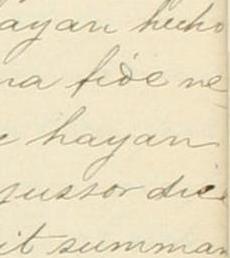 ayan hecho
na fide ne
e hayan
jussor die
it summar